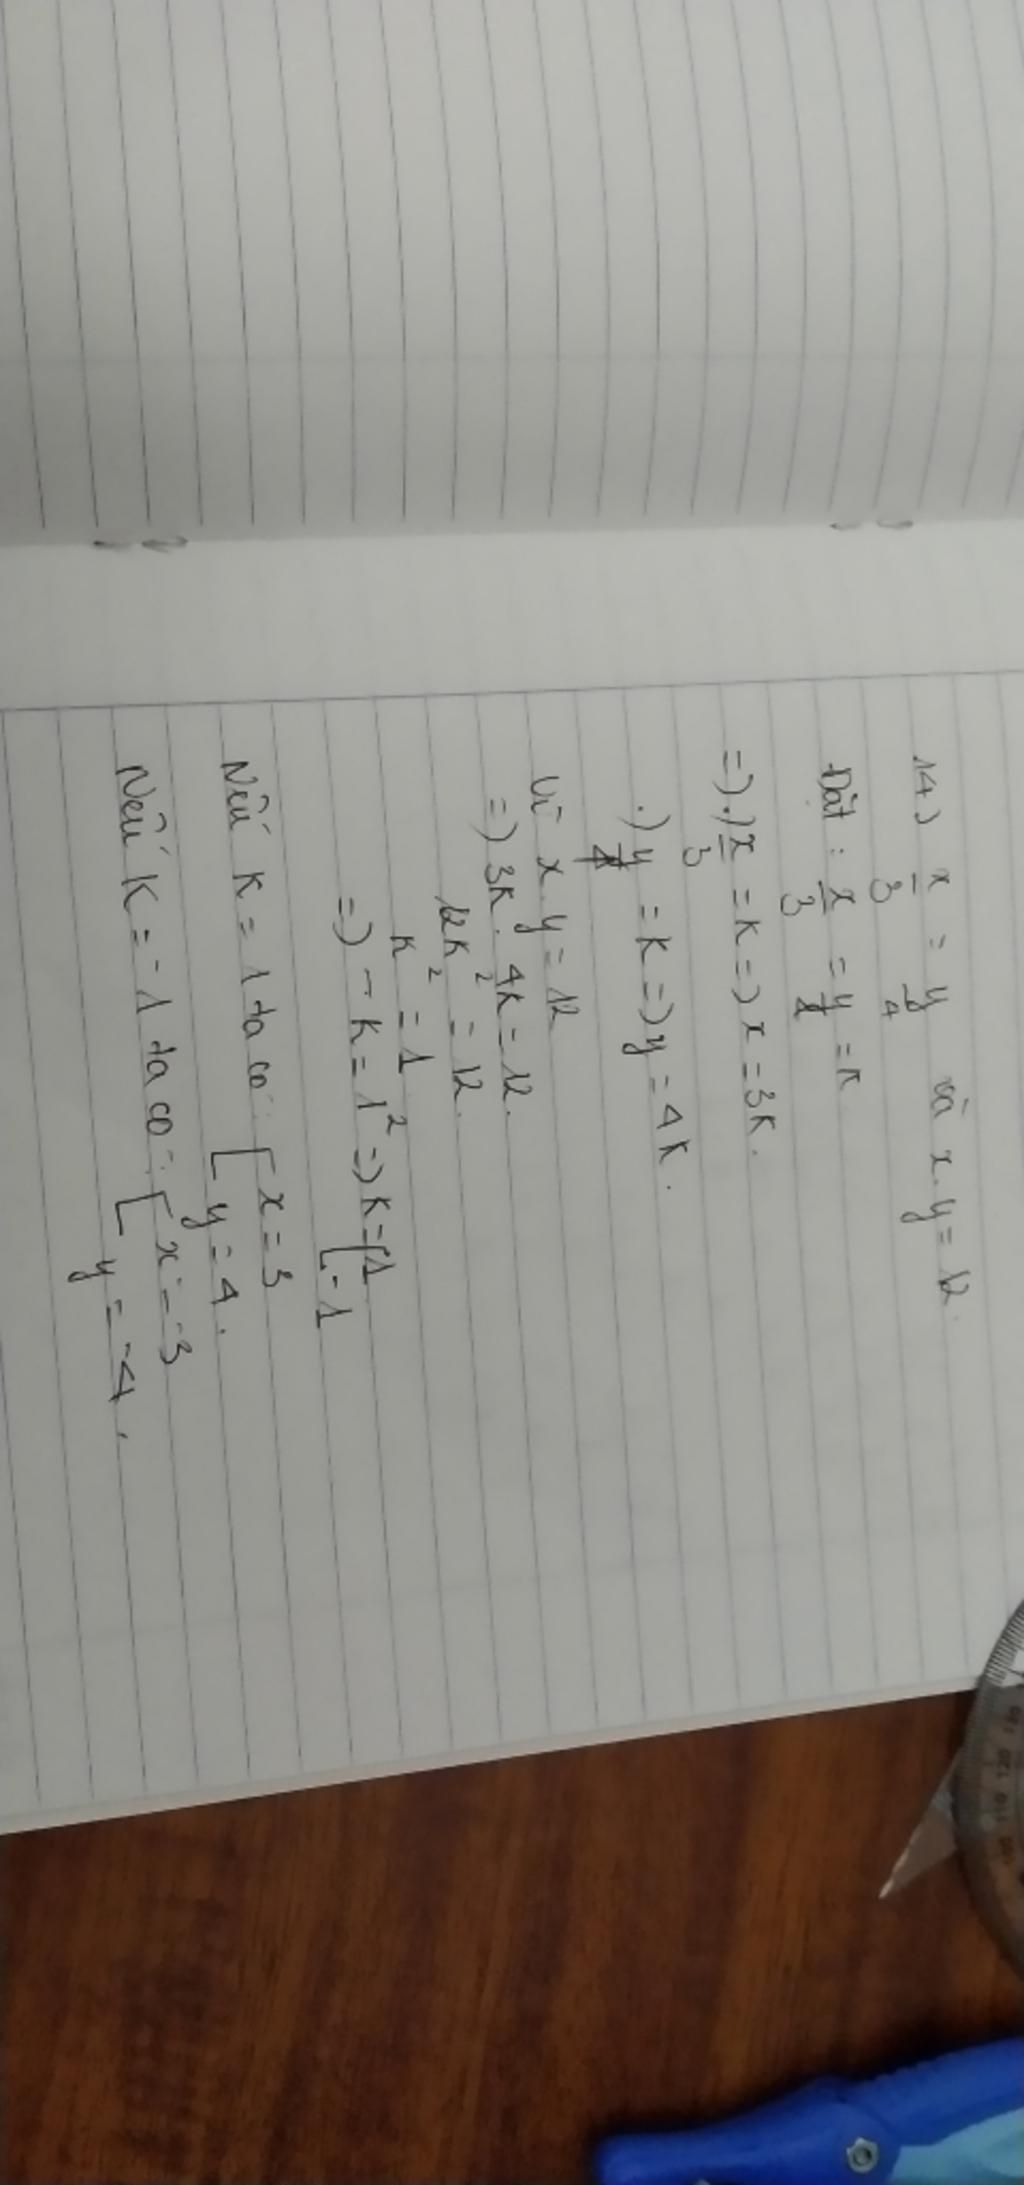 14) x/3 = y/4 và x.y = 12.
Đặt: x/3 = y/4 = k
=> .) x/3 = k => x = 3k.
.) y/4 = k => y = 4k.
Vì x.y = 12
=> 3k. 4k = 12.
12k² = 12.
k² = 1
=> - k = 1² => k = [1
[-1
Nếu k = 1 ta có: [x = 3
[y = 4.
Nếu k = -1 ta có: [x = -3
[y = -4.
110 120 130